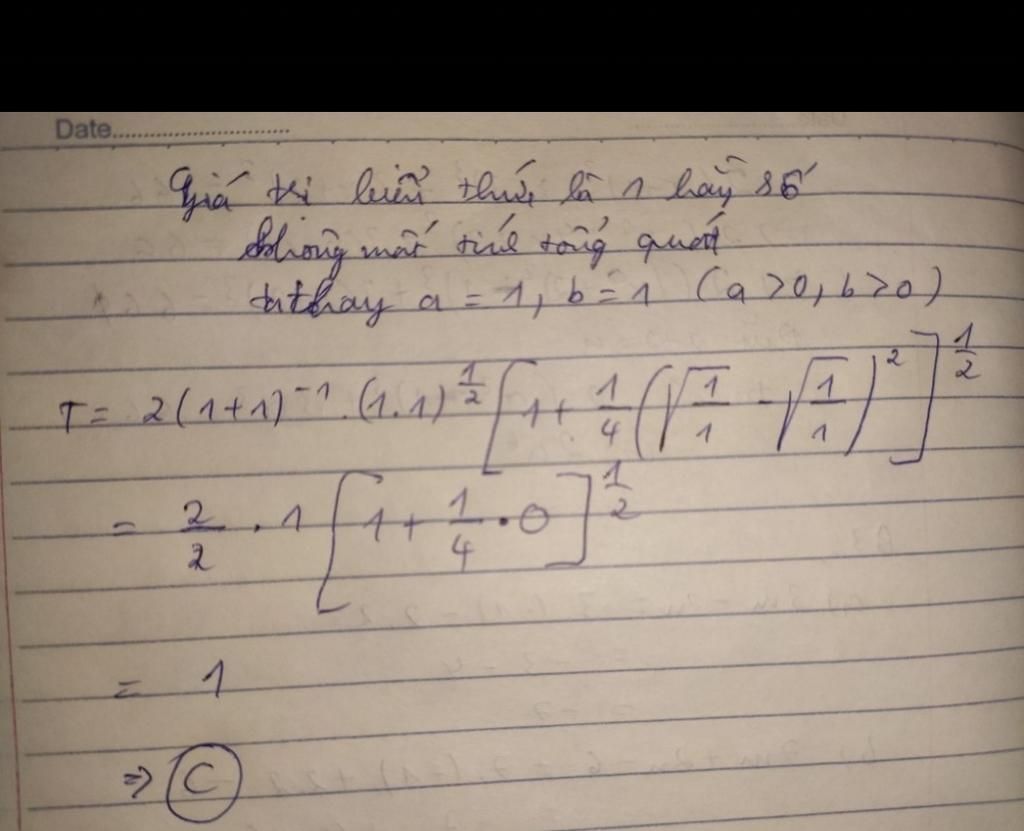 Date..............................
Giá trị biểu thức là 1 hằng số
không mất tính tổng quát
ta thay a = 1, b = 1 (a > 0, b > 0)
T = 2(1+1)^{-1} . (1.1)^{\frac{1}{2}} [1 + \frac{1}{4} (\sqrt{\frac{1}{1}} - \sqrt{\frac{1}{1}})^2]^{\frac{1}{2}}
= \frac{2}{2} . 1 [1 + \frac{1}{4} . 0]^{\frac{1}{2}}
= 1
=> C